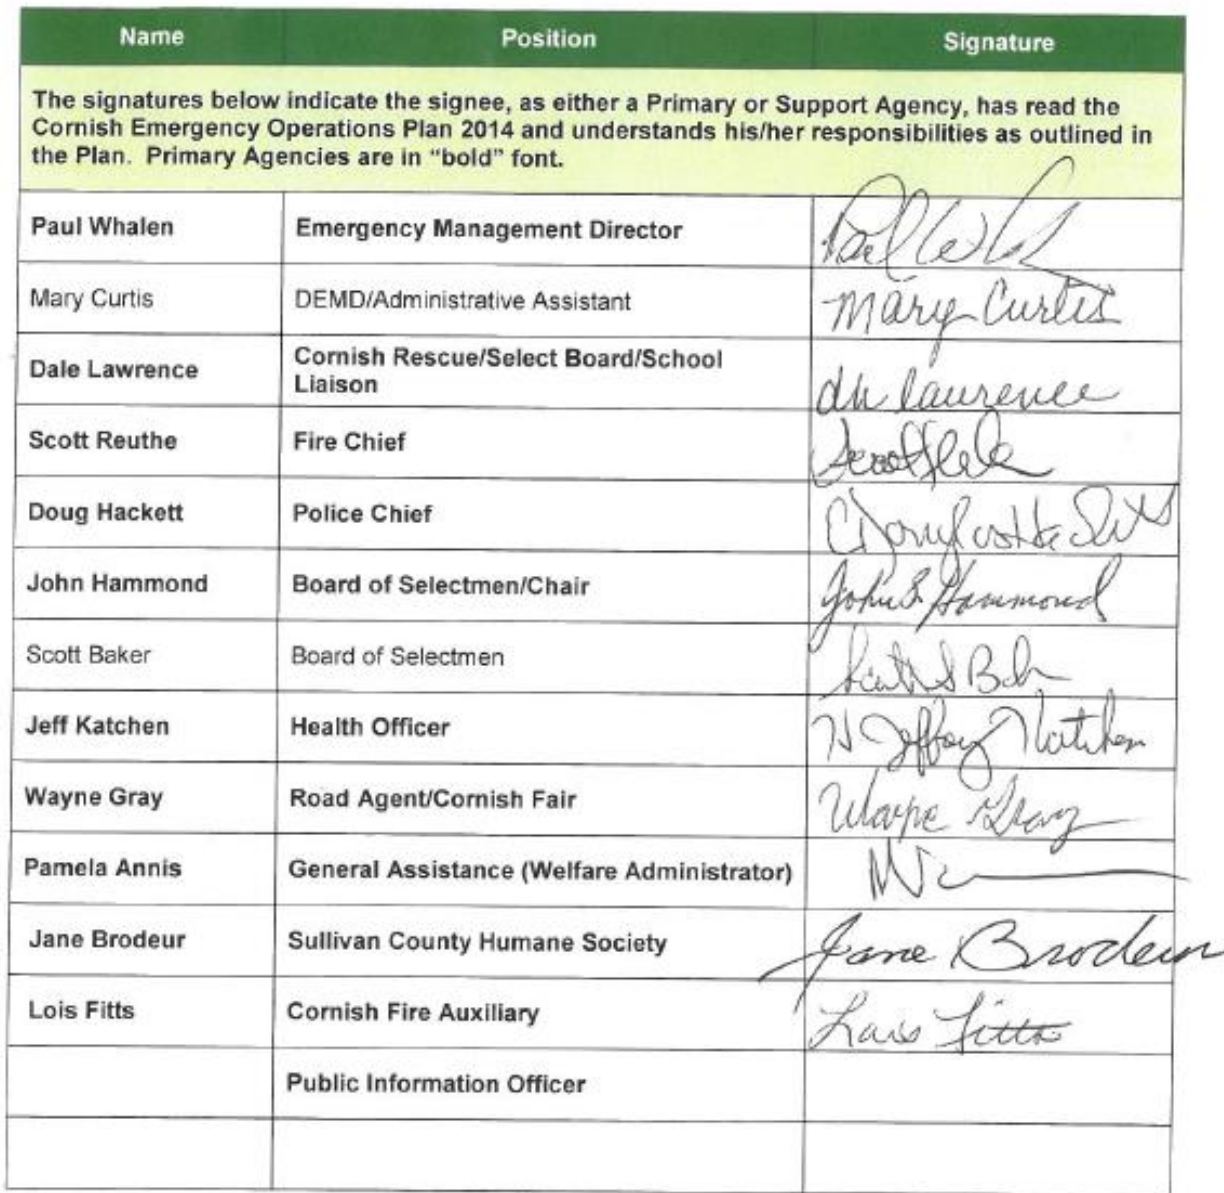 Name Position Signature
The signatures below indicate the signee, as either a Primary or Support Agency, has read the
Cornish Emergency Operations Plan 2014 and understands his/her responsibilities as outlined in
the Plan. Primary Agencies are in “bold” font.
Paul Whalen Emergency Management Director
Mary Curtis DEMD/Administrative Assistant Mary Curtis
Dale Lawrence Cornish Rescue/Select Board/School
Liaison
Lawrence
Scott Reuthe Fire Chief
Doug Hackett Police Chief
John Hammond Board of Selectmen/Chair John B Hammond
Scott Baker Board of Selectmen
Jeff Katchen Health Officer H Jeffrey Katchen
Wayne Gray Road Agent/Cornish Fair Wayne Gray
Pamela Annis General Assistance (Welfare Administrator)
Jane Brodeur Sullivan County Humane Society Jane Brodeur
Lois Fitts Cornish Fire Auxiliary Lois Fitts
Public Information Officer